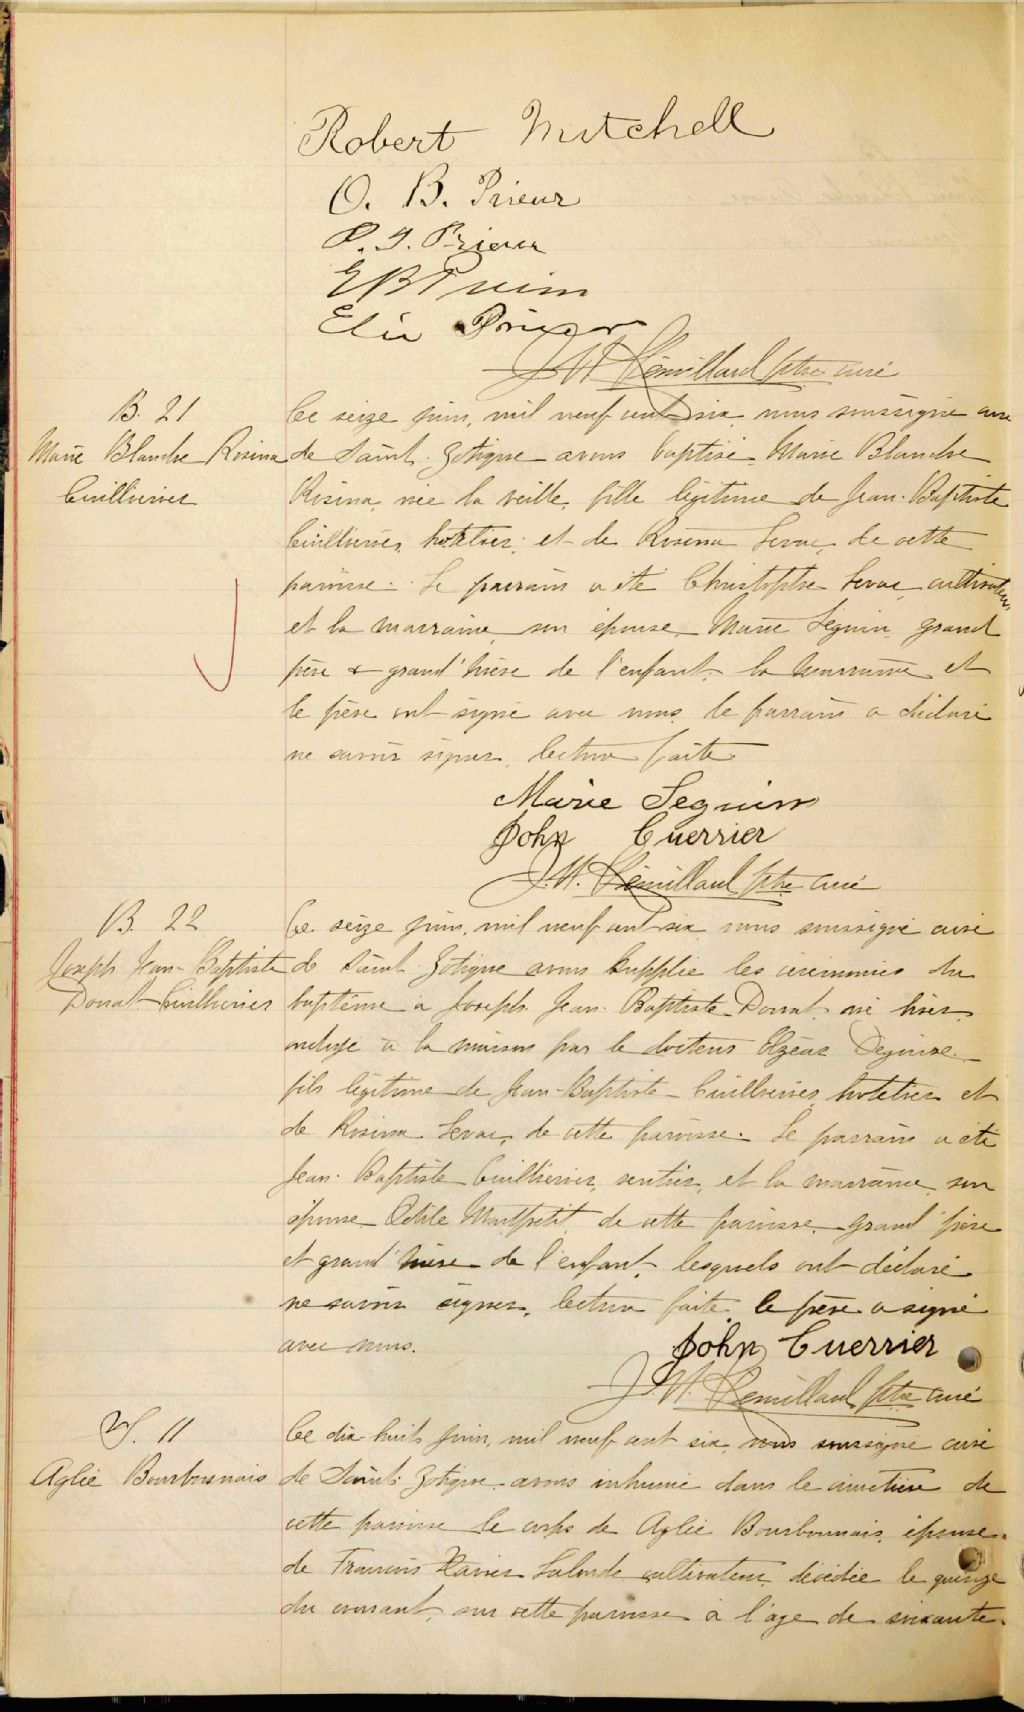 Robert Mitchell
O. B. Prieur
P. J. Prieur
E B Prieur
Elie Prieur
J. W. Rémillard ptre curé
B. 21
Marie Blanche Rosina
Cuillierier
Ce seize juin, mil neuf cent six, nous soussigné curé
de Saint Zotique avons baptisé Marie Blanche
Rosina, née la veille, fille légitime de Jean-Baptiste
Cuillierier, hotelier, et de Rosina Levac, de cette
paroisse. Le parrain a été Christophe Levac, cultivateur,
et la marraine, son épouse, Marie Seguin, grand
père & grand'mère de l'enfant. la marraine et
le père ont signé avec nous, le parrain a déclaré
ne savoir signer, lecture faite
Marie Seguin
John Cuerrier
J. W. Rémillard ptre curé
B. 22
Joseph Jean-Baptiste
Donat Cuillierier
Ce seize juin, mil neuf cent six, nous soussigné curé
de Saint Zotique avons supplié les cérémonies du
baptême à Joseph Jean Baptiste Donat, né hier,
ondoyé à la maison par le docteur Elzéar
fils légitime de Jean-Baptiste Cuillierier, hotelier et
de Rosina Levac, de cette paroisse. Le parrain a été
Jean Baptiste Cuillierier, rentier, et la marraine, son
épouse Odile Montpetit, de cette paroisse, grand'père
et grand'mère de l'enfant, lesquels ont déclaré
ne savoir signer, lecture faite. le père a signé
avec nous.
John Cuerrier
J. W. Rémillard ptre curé
S. 11
Aglie Bourbonnais
Ce dix-huit juin, mil neuf cent six, nous soussigné curé
de Saint Zotique avons inhumé dans le cimetière de
cette paroisse le corps de Aglie Bourbonnais, épouse
de François Xavier Lalonde cultivateur, décédée le quinze
du courant, sur cette paroisse à l'age de soixante